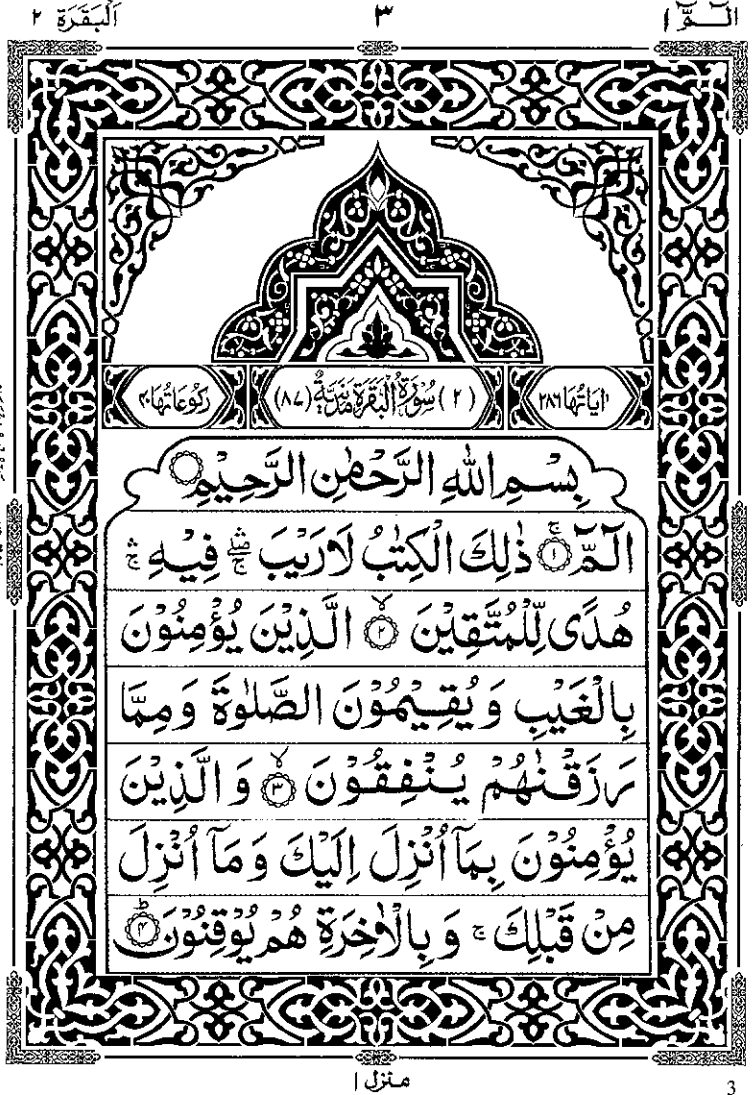 الٓمّٓ ١ ٣ اَلْبَقَرَة ٢
اٰيَاتُهَا ٢٨٦ (٢) سُوْرَةُ الْبَقَرَةِ مَدَنِيَّةٌ (٨٧) رُكُوْعَاتُهَا ٤٠
بِسْمِ اللّٰهِ الرَّحْمٰنِ الرَّحِيْمِ ○
الٓمّٓ ۚ ﴿١﴾ ذٰلِكَ الْكِتٰبُ لَا رَيْبَ ۛۖۚ فِيْهِ ۛۚ
هُدًى لِّلْمُتَّقِيْنَ ۙ ﴿٢﴾ الَّذِيْنَ يُؤْمِنُوْنَ
بِالْغَيْبِ وَ يُقِيْمُوْنَ الصَّلٰوةَ وَ مِمَّا
رَزَقْنٰهُمْ يُنْفِقُوْنَ ۙ ﴿٣﴾ وَ الَّذِيْنَ
يُؤْمِنُوْنَ بِمَاۤ اُنْزِلَ اِلَيْكَ وَ مَاۤ اُنْزِلَ
مِنْ قَبْلِكَ ۚ وَ بِالْاٰخِرَةِ هُمْ يُوْقِنُوْنَ ؕ ﴿٤﴾
منزل ١
3